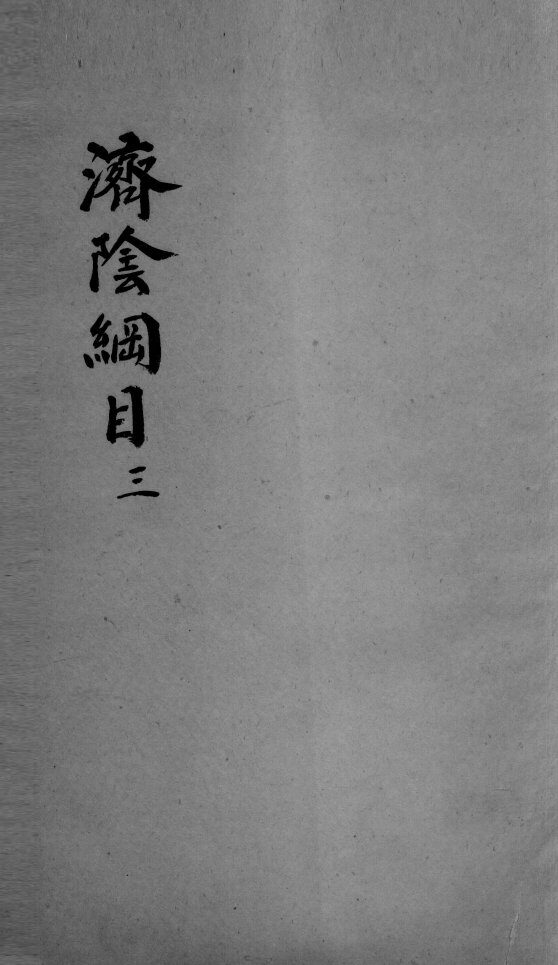 濟陰綱目三